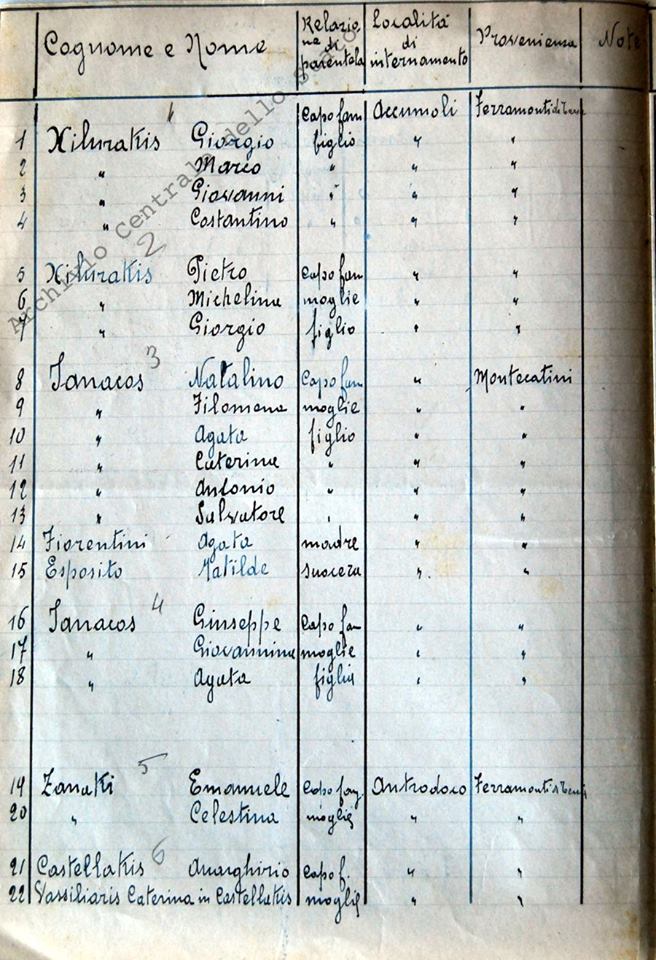 Cognome e Nome Relazione di parentela Località di internamento Provenienza Note
Archivio Centrale dello Stato
1
Capo fam Accumoli Ferramonti di
1 Xilurakis Giorgio figlio " "
2 " Marco " " "
3 " Giovanni " " "
4 " Costantino " " "
2
5 Xilurakis Pietro Capo fam " "
6 " Michelina moglie " "
7 " Giorgio figlio " "
3
8 Tanacos Natalino Capo fam " Montecatini
9 " Filomena moglie " "
10 " Agata figlio " "
11 " Caterina " " "
12 " Antonio " " "
13 " Salvatore " " "
14 Fiorentini Agata madre " "
15 Esposito Matilde suocera " "
4
16 Tanacos Giuseppe Capo fam " "
17 " Giovannina moglie " "
18 " Agata figlia " "
5
19 Zanaki Emanuele Capo fam. Antrodoco Ferramonti di
20 " Celestina moglie " "
6
21 Castellakis Anarghirio Capo f. " "
22 Vassiliaris Caterina in Castellakis moglie " "